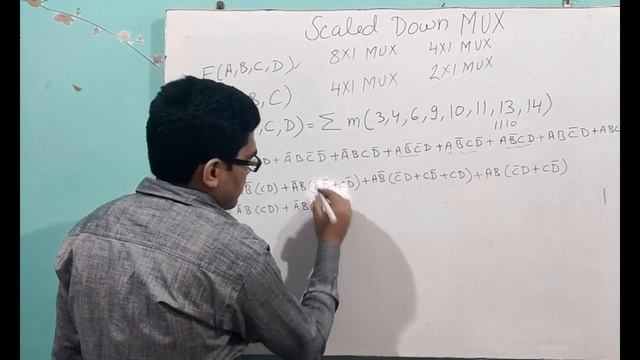 Scaled Down MUX
8X1 MUX 4X1 MUX
F(A,B,C,D),
4X1 MUX 2X1 MUX
B, C)
C,D) = Σ m(3,4,6,9,10,11,13,14)
1110
D + ĀBC̄D̄ + ĀBCD̄ + AB̄C̄D + AB̄CD̄ + AB̄CD + ABC̄D + ABC
ĀB̄(CD) + ĀB( +CD̄) + AB̄(C̄D+CD̄+CD) + AB(C̄D+CD̄)
ĀB̄(CD) + ĀB(